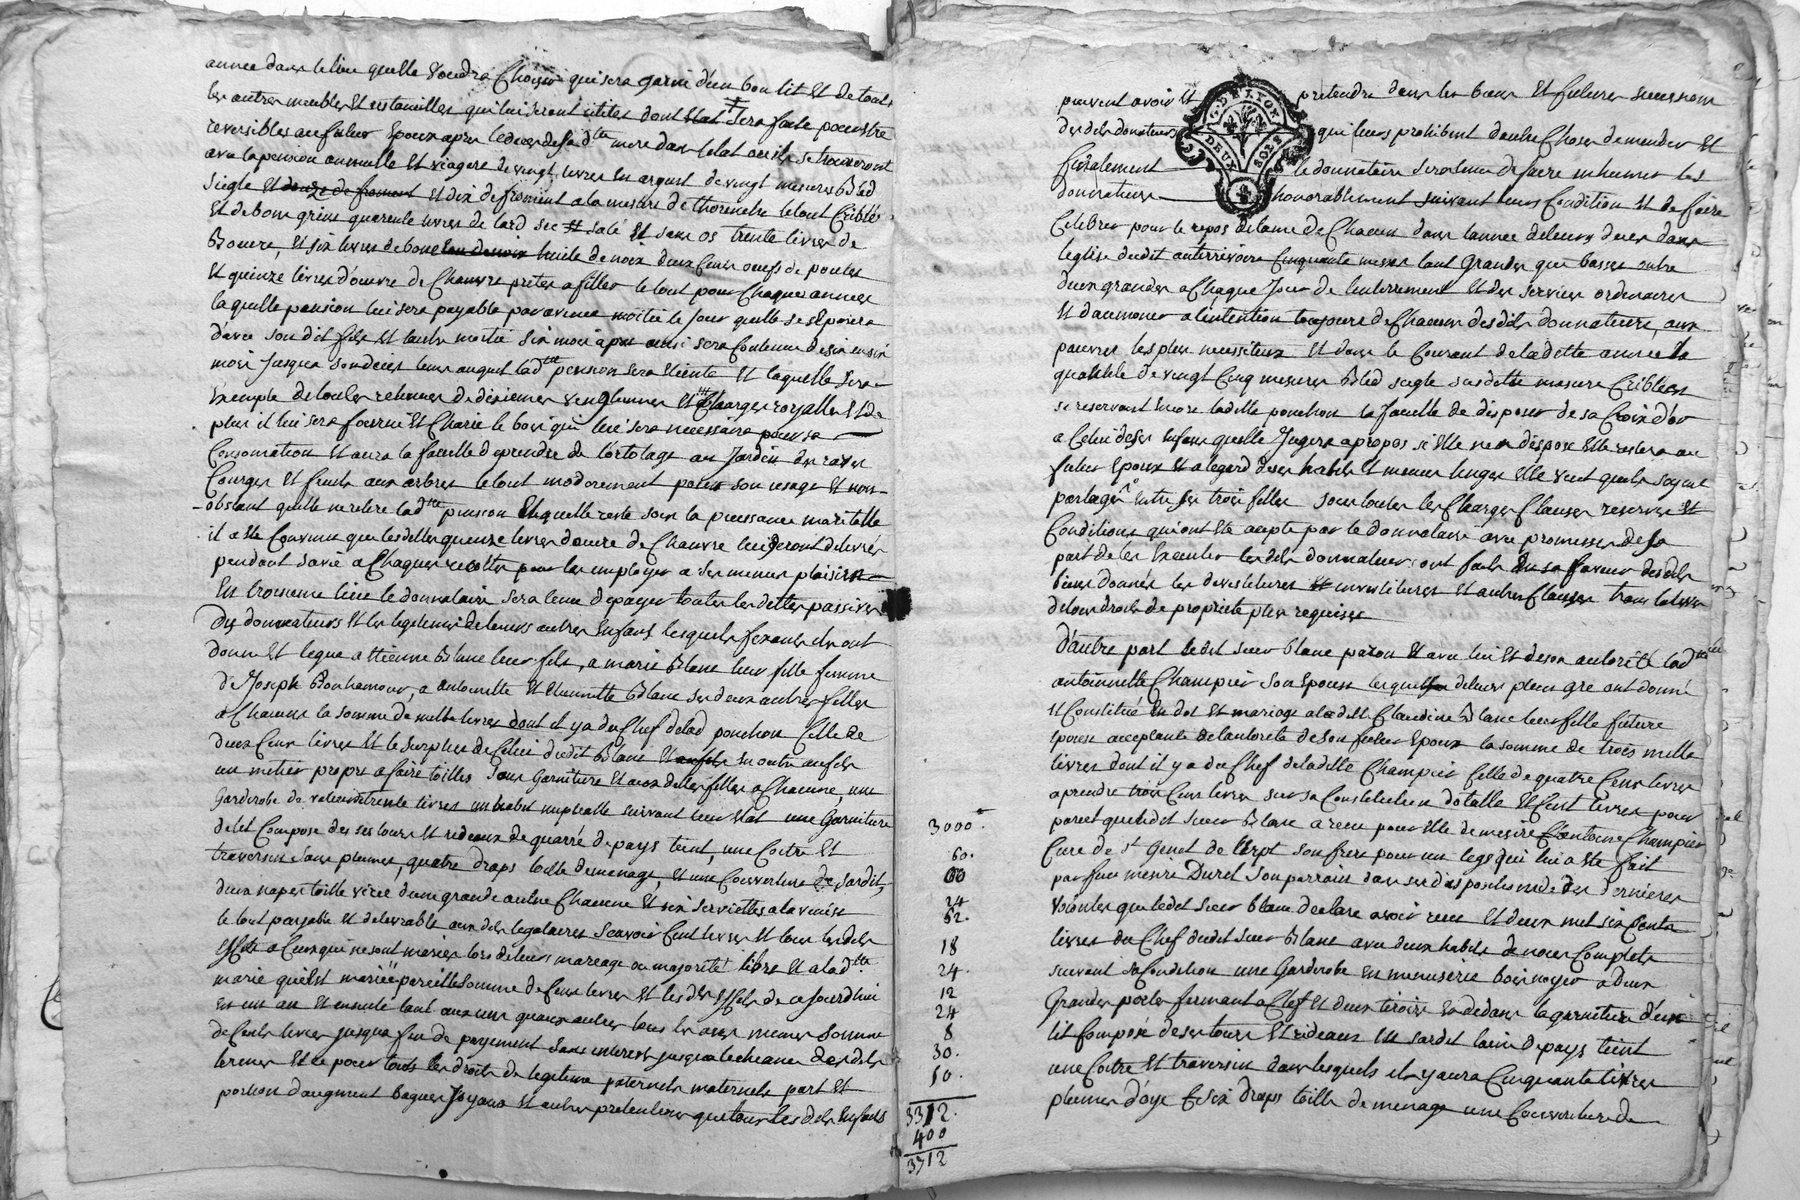 année dans le lieu quelle voudra Choisir qui sera garni d'un bon lit Et de tous
les autres meubles Et ustancilles qui lui seront utiles dont Etat sera fait pour Etre
reversibles au futur Epoux apres le deces de sa dtte mere dans letat ou ils se trouveront
avec la pension annuelle Et viagere de vingt livres En argent de vingt mesures Bled
siegle Et douze de froment Et dix de froment a la mesure de thorenche le tout Criblés
Et de bons grins quarente livres de lard sec Et salé Et sans os trente livres de
Beurre, Et six livres de bone huile de noix deux Cents oeufs de poules
Et quinze livres d'oeuvre de Chanvre pretes a filler le tout pour Chaques années
la quelle pension lui sera payable par avance moitié le jour quelle se separera
d'avec son dit fils Et l'autre moitié six mois après ainsi sera Continué de six en six
mois jusqua son deces tems auquel ladtte pension sera Eteinte Et laquelle sera
Exempte de toutes retenues de dixiemes vingtiemes Et Charges royalles Et de
plus il lui sera fourni Et Charié le bois qui lui sera necessaire pour sa
Consomation Et aura la faculté de prendre de l'ortolage au Jardin des raves
Courges Et fruits aux arbres le tout moderement pour son usage Et non
obstant quelle ne retire ladtte pension Et quelle reste sous la puissance maritalle
il a Eté Convenu que lesdittes quinze livres doeuvre de Chanvre lui seront delivrés
pendant sa vie a Chaques recoltes pour les employer a ses menus plaisirs
En troisieme lieu le donnataire sera tenu de payer toutes les dettes passives
Des donnateurs Et les legitimes de leurs autres Enfans lesquels fixant ils ont
donné Et legué a Etienne Blanc leur fils, a marie Blanc leur fille femme
de Joseph Bonhamour, a antoinette Et Blanc ses deux autres filles
a Chacuns la somme de mille livres dont il y a du Chef de lad. ponchon Celle de
deux Cens livres Et le surplus de Celui dudit Blanc Et En outre au fils
un metier propre a faire toilles sans Garniture Et aux dittes filles a Chacune, une
Garderobe de valeur trente livres un habit nuptialle suivant leur Etat une Garniture
de lit Composé de ses tours Et rideaux de quarré de pays teint, une Coitre Et
traversin sans plumes, quatre draps toille de menage, Et une Couverture de sardit,
deux napes toille virée d'une grande aulne Chacune Et six serviettes a la venise
le tout payable Et delivrable aux dits legataires sçavoir Cent livres Et tous lesdits
Effets a Ceux qui ne sont mariés lors de leurs mariage ou majorité libre Et a ladtte
marie qui Est mariée pareille somme de Cent livres Et lesdits Effets de ce Jourdhui
En un an Et ensuite tant aux uns quaux autres tous les ans meme somme
de Cents livres jusqua fin de payement sans interet jusqua lecheance desdits
termes Et ce pour tous les droits de legitime paternels maternels part Et
portion d'augment bagues Joyaux Et autres pretentions que tous lesdits Enfants
3000.
60.
60
24
62.
18
24.
12
24
8
30.
50.
3312.
400
3712
G. DE LYON
DEUX SOLS
peuvent avoir Et pretendre dans les biens Et futures successions
desdits donateurs qui leurs prohibent d'autre Chose demander Et
finalement le donnataire sera tenu de faire inhumer les
donnateurs honorablement suivant leurs Condition Et de faire
Celebrer pour le repos de lame de Chacun dans lannée de leurs deces dans
leglise dudit anterrivoire Cinquante messes tant Grandes que basses outre
deux grandes a Chaque Jour de lenterrement Et des services ordinaires
Et d'aumoner a l'intention toujours de Chacun desdits donnateurs, aux
pauvres les plus necessiteux Et dans le Courant de laditte année la
quantité de vingt Cinq mesures Bled siegle susditte mesure Cribléés
se reservant Encore laditte ponchon la faculté de disposer de sa Croix d'or
a Celui de ses Enfans quelle Jugera apropos si Elle nen dispose Elle restera au
futur Epoux Et a legard de ses habits Et menus linges Elle veut quils soyent
partagés Entre ses trois filles sous toutes les Charges Clauses reserves Et
Conditions qui ont Eté accepté par le donnataire avec promesses de sa
part de les Executer lesdits donnateurs ont fait En sa faveur desdits
biens donnés les devestitures Et investitures Et autres Clauses translatives
de tous droits de propriété plus requises
D'autre part ledit sieur Blanc pazon Et avec lui Et de son autorité ladtte
antoinette Champier son Epouse lesquels de leurs plein gré ont donné
Et Constitué En dot Et mariage a laditte Claudine Blanc leur fille future
Epouse acceptante de lautorité de son futur Epoux la somme de trois mille
livres dont il y a du Chef de laditte Champier Celle de quatre Cens livres
a prendre trois Cens livres sur sa Constitution dotalle Et Cent livres pour
pareil que ledit sieur Blanc a recu pour Elle de messire antoine Champier
Curé de st Genet de lerpt son frere pour un legs qui lui a Eté fait
par feu messire Duret son parrain dans ses dispositions de dernieres
volontés que ledit sieur blanc declare avoir recu Et deux mil six Cents
livres du Chef dudit sieur Blanc avec deux habits de noces Complets
suivant sa Condition une Garderobe En menuiserie bois noyer a deux
Grandes portes fermant a Clef Et deux tiroirs En dedans la garniture d'un
lit Composé de ses tours Et rideaux En sardit laine de pays teint
une Coitre Et traversin dans lesquels il y aura Cinquante livres
plumes d'oye Et six draps toille de menage une Couverture de